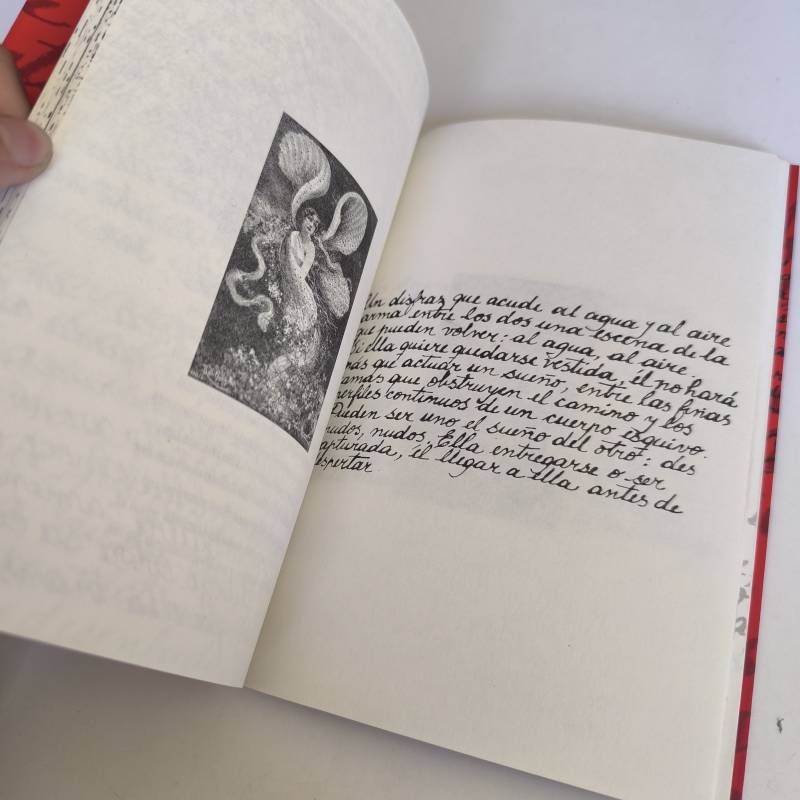 Un disfraz que acude al agua y al aire
arma entre los dos una escena de la
que pueden volver: al agua, al aire.
Si ella quiere quedarse vestida, él no hará
más que actuar un sueño, entre las finas
ramas que obstruyen el camino y los
perfiles continuos de un cuerpo esquivo.
Pueden ser uno el sueño del otro: des
nudos, nudos, Ella entregarse o ser
capturada, él llegar a Ella antes de
despertar